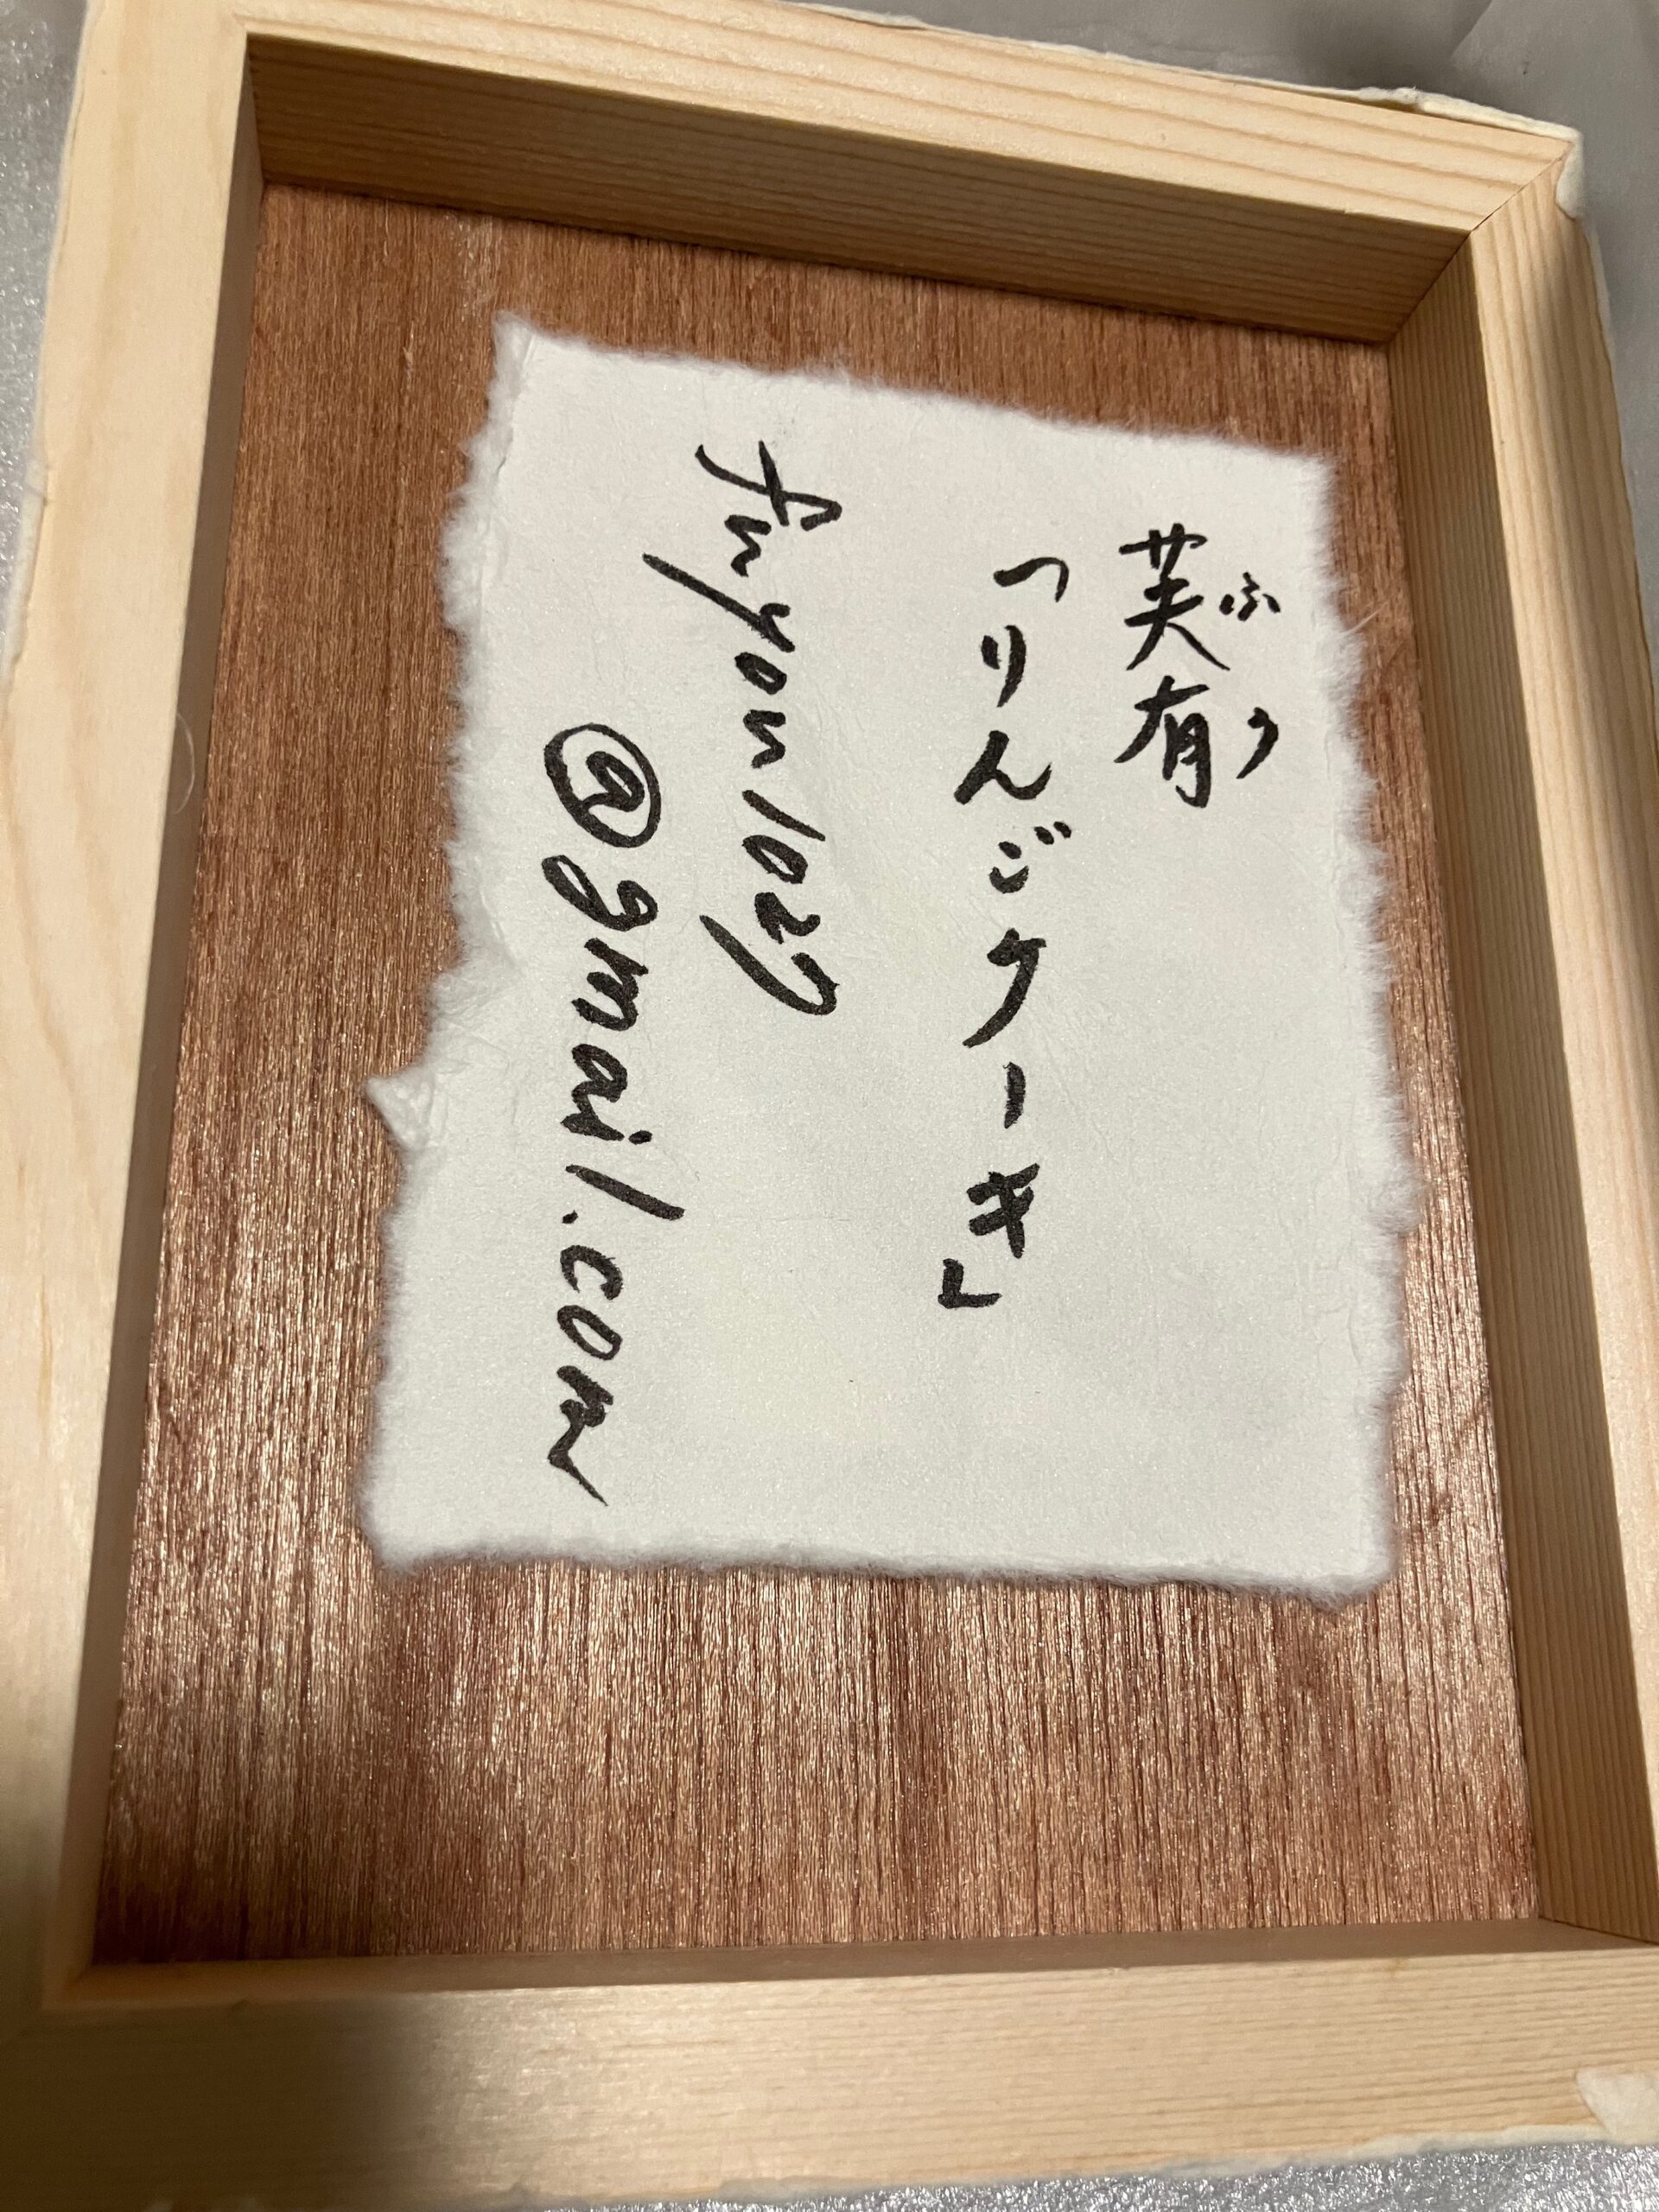 芙有
ふう
「りんごケーキ」
fuyou1027
@gmail.com